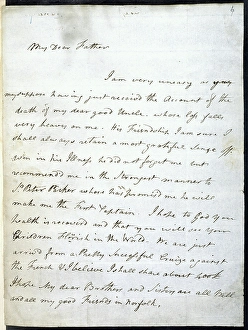 4
My Dear Father
I am very uneasy as you
may suppose having just received the Account of the
death of my dear good Uncle. whose loss falls
very heavy on me. His Friendship I am sure I
shall always retain a most grateful Sense off
even in his Illness he did not forget me but
recommended me in the Strongest manner to
Sr. Peter Parker where has promised me he will
make me the First Captain. I hope to God your
health is recovered and that you will see your
Children Flourish in the World. We are just
arrived from a Pretty Successful Cruize against
the French & I believe I shall share about 400£
I hope My dear Brothers and Sisters are all Well
and all my good Friends in Norfolk.